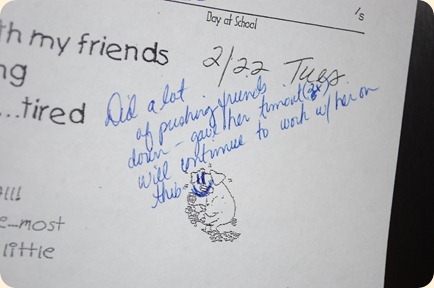 's
Day at School
th my friends
2/22 Tues.
ng
...tired
Did a lot
of pushing friends
down - gave her timeout (2x)
will continue to work w/ her on
this
e...most
little